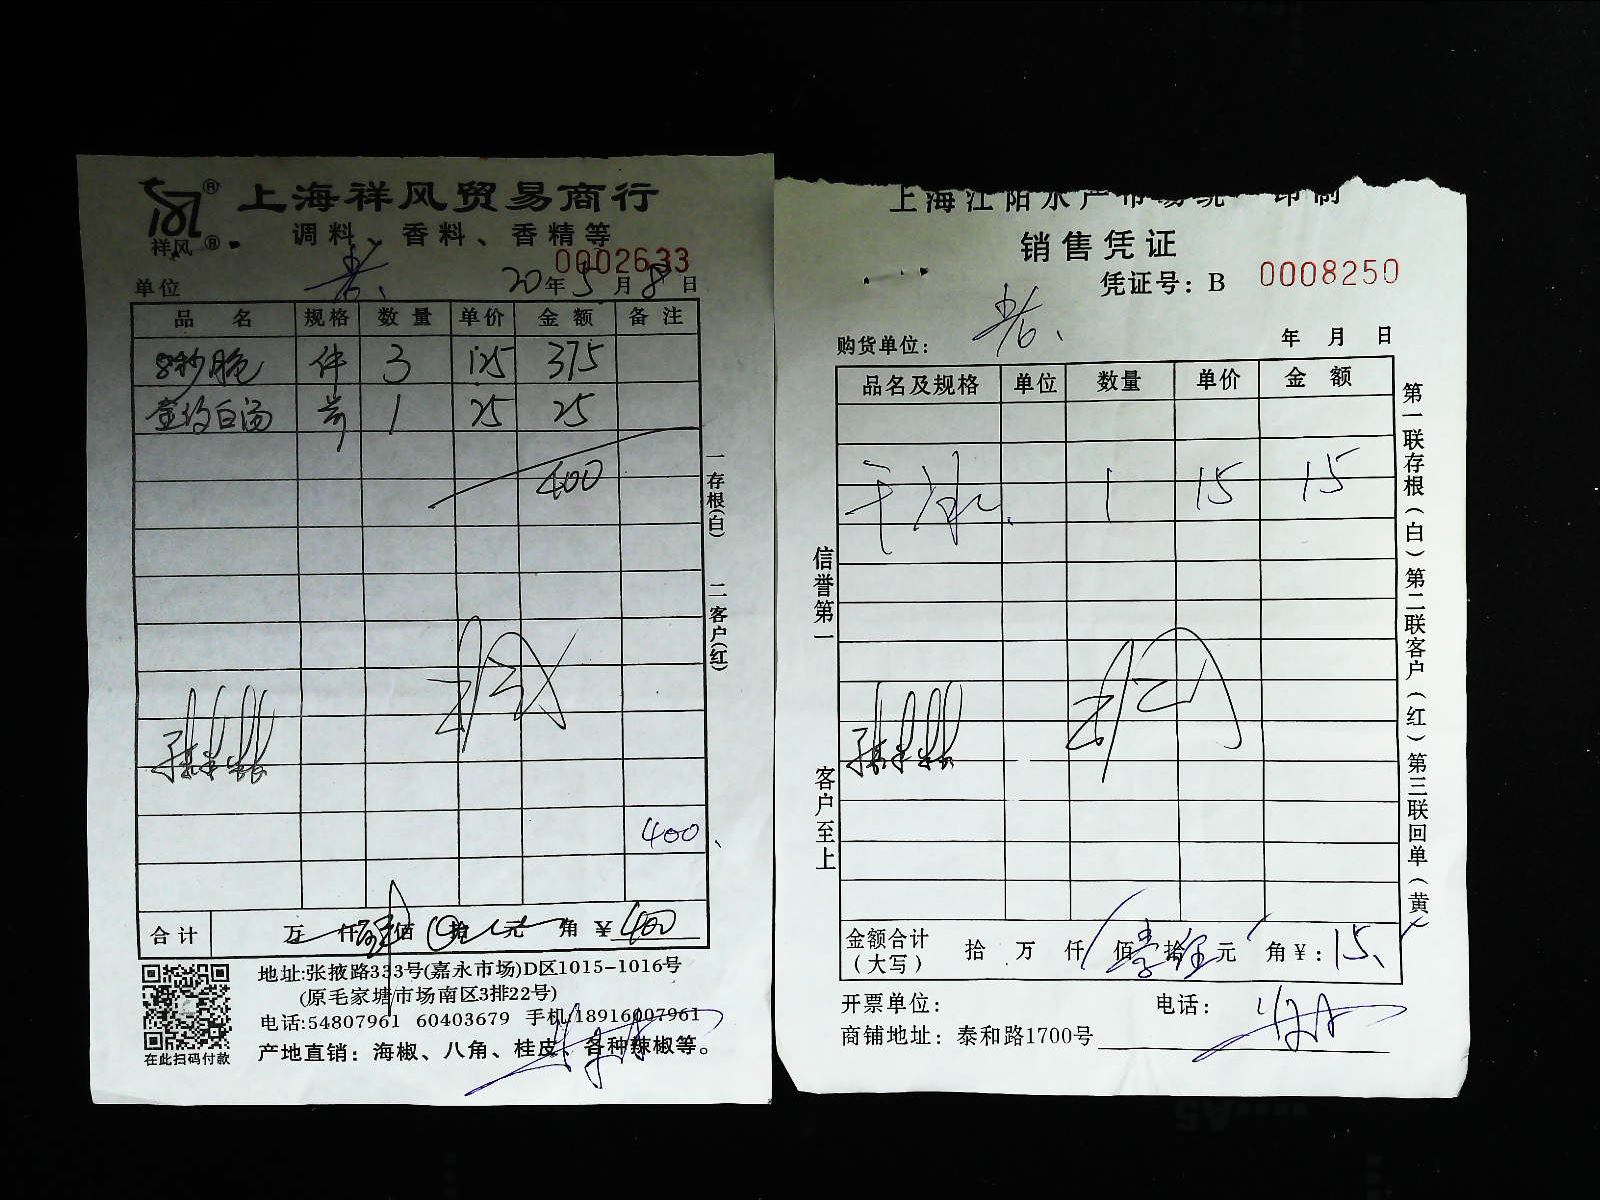 上海祥风贸易商行
祥风
调料、香料、香精等
0002633
单位
20年5月8日
品名 规格 数量 单价 金额 备注
8秒脆 件 3 125 375
白汤 1 25 25
400
400、
一存根(白) 二客户(红)
合计 万 仟 佰 拾 元 角 ¥400
地址:张掖路333号(嘉永市场)D区1015-1016号
(原毛家塘市场南区3排22号)
电话:54807961 60403679 手机:18916007961
产地直销：海椒、八角、桂皮、各种辣椒等。
在此扫码付款
上海江阳水产市场统一印制
销售凭证
凭证号：B 0008250
购货单位：
年 月 日
品名及规格 单位 数量 单价 金额
干冰 1 15 15
信誉第一
客户至上
第一联存根(白)第二联客户(红)第三联回单(黄)
金额合计(大写) 拾 万 仟 佰 壹拾 元 角 ¥：15、
开票单位： 电话：
商铺地址：泰和路1700号